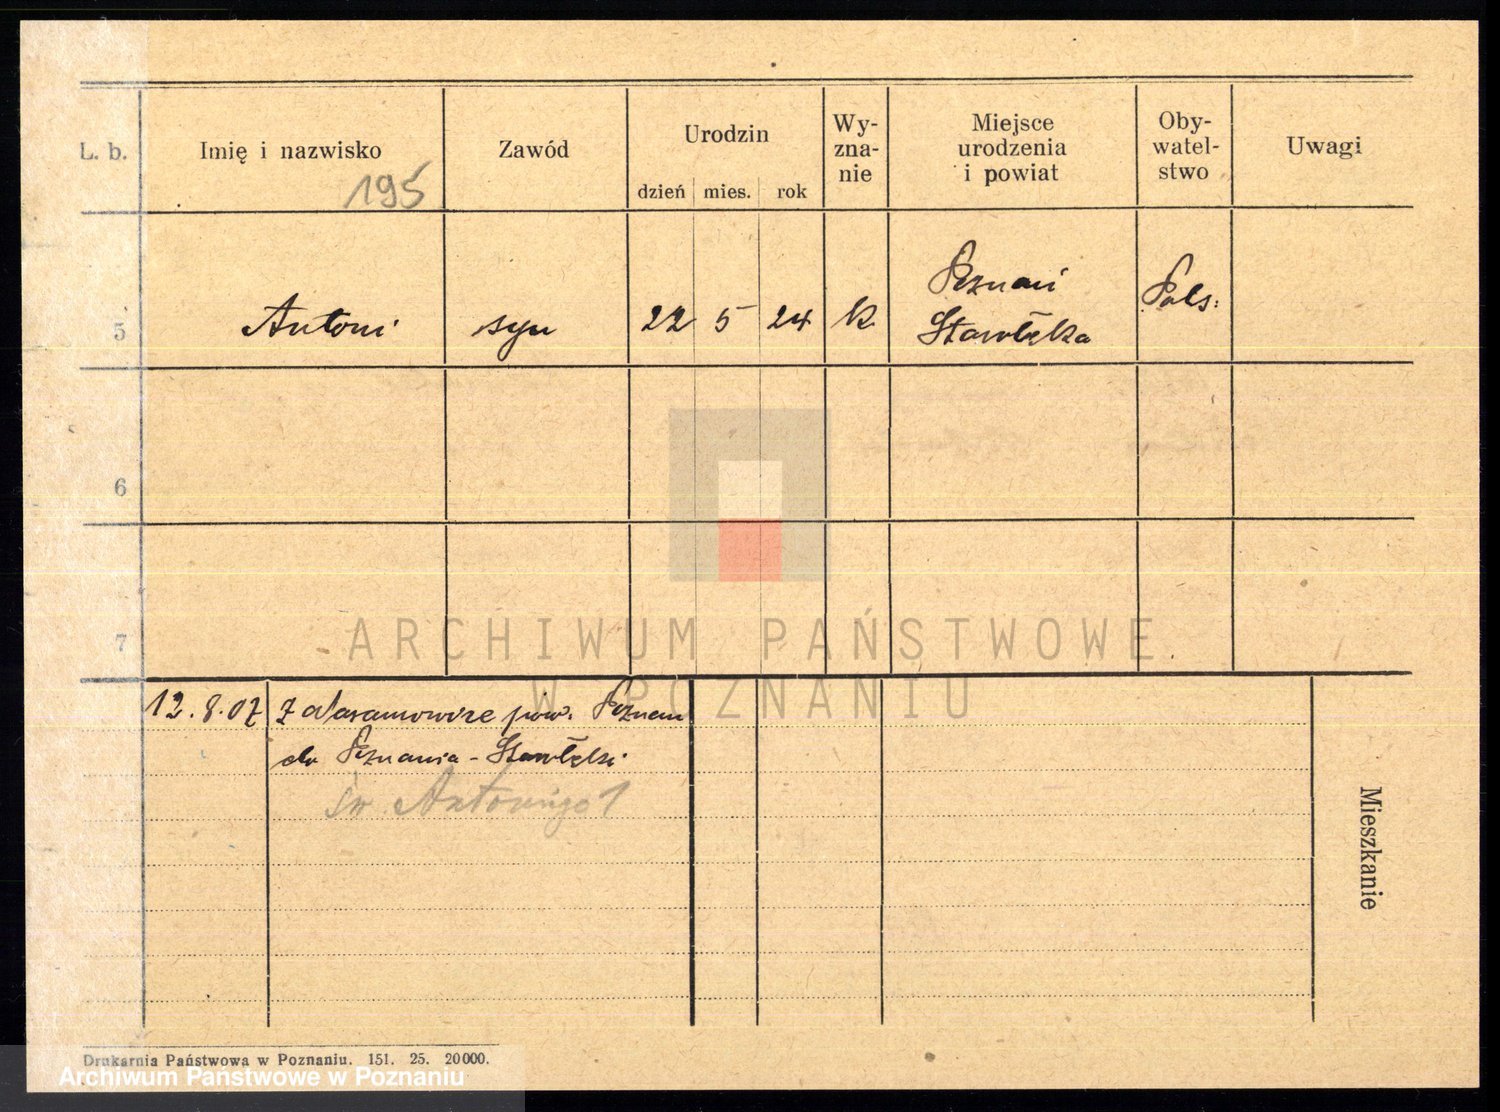 L. b.
Imię i nazwisko
195
Zawód
Urodzin
dzień mies. rok
Wy-
zna-
nie
Miejsce
urodzenia
i powiat
Oby-
watel-
stwo
Uwagi
5
Antoni
syn
22 5 24
k
Poznań
Starołęka
Pols.
6
7
ARCHIWUM PAŃSTWOWE
W POZNANIU
12.8.07
z Naramowice pow. Poznan
do Poznania - Starołęki
św. Antoniego 1
Mieszkanie
Drukarnia Państwowa w Poznaniu. 151. 25. 20000.
Archiwum Państwowe w Poznaniu